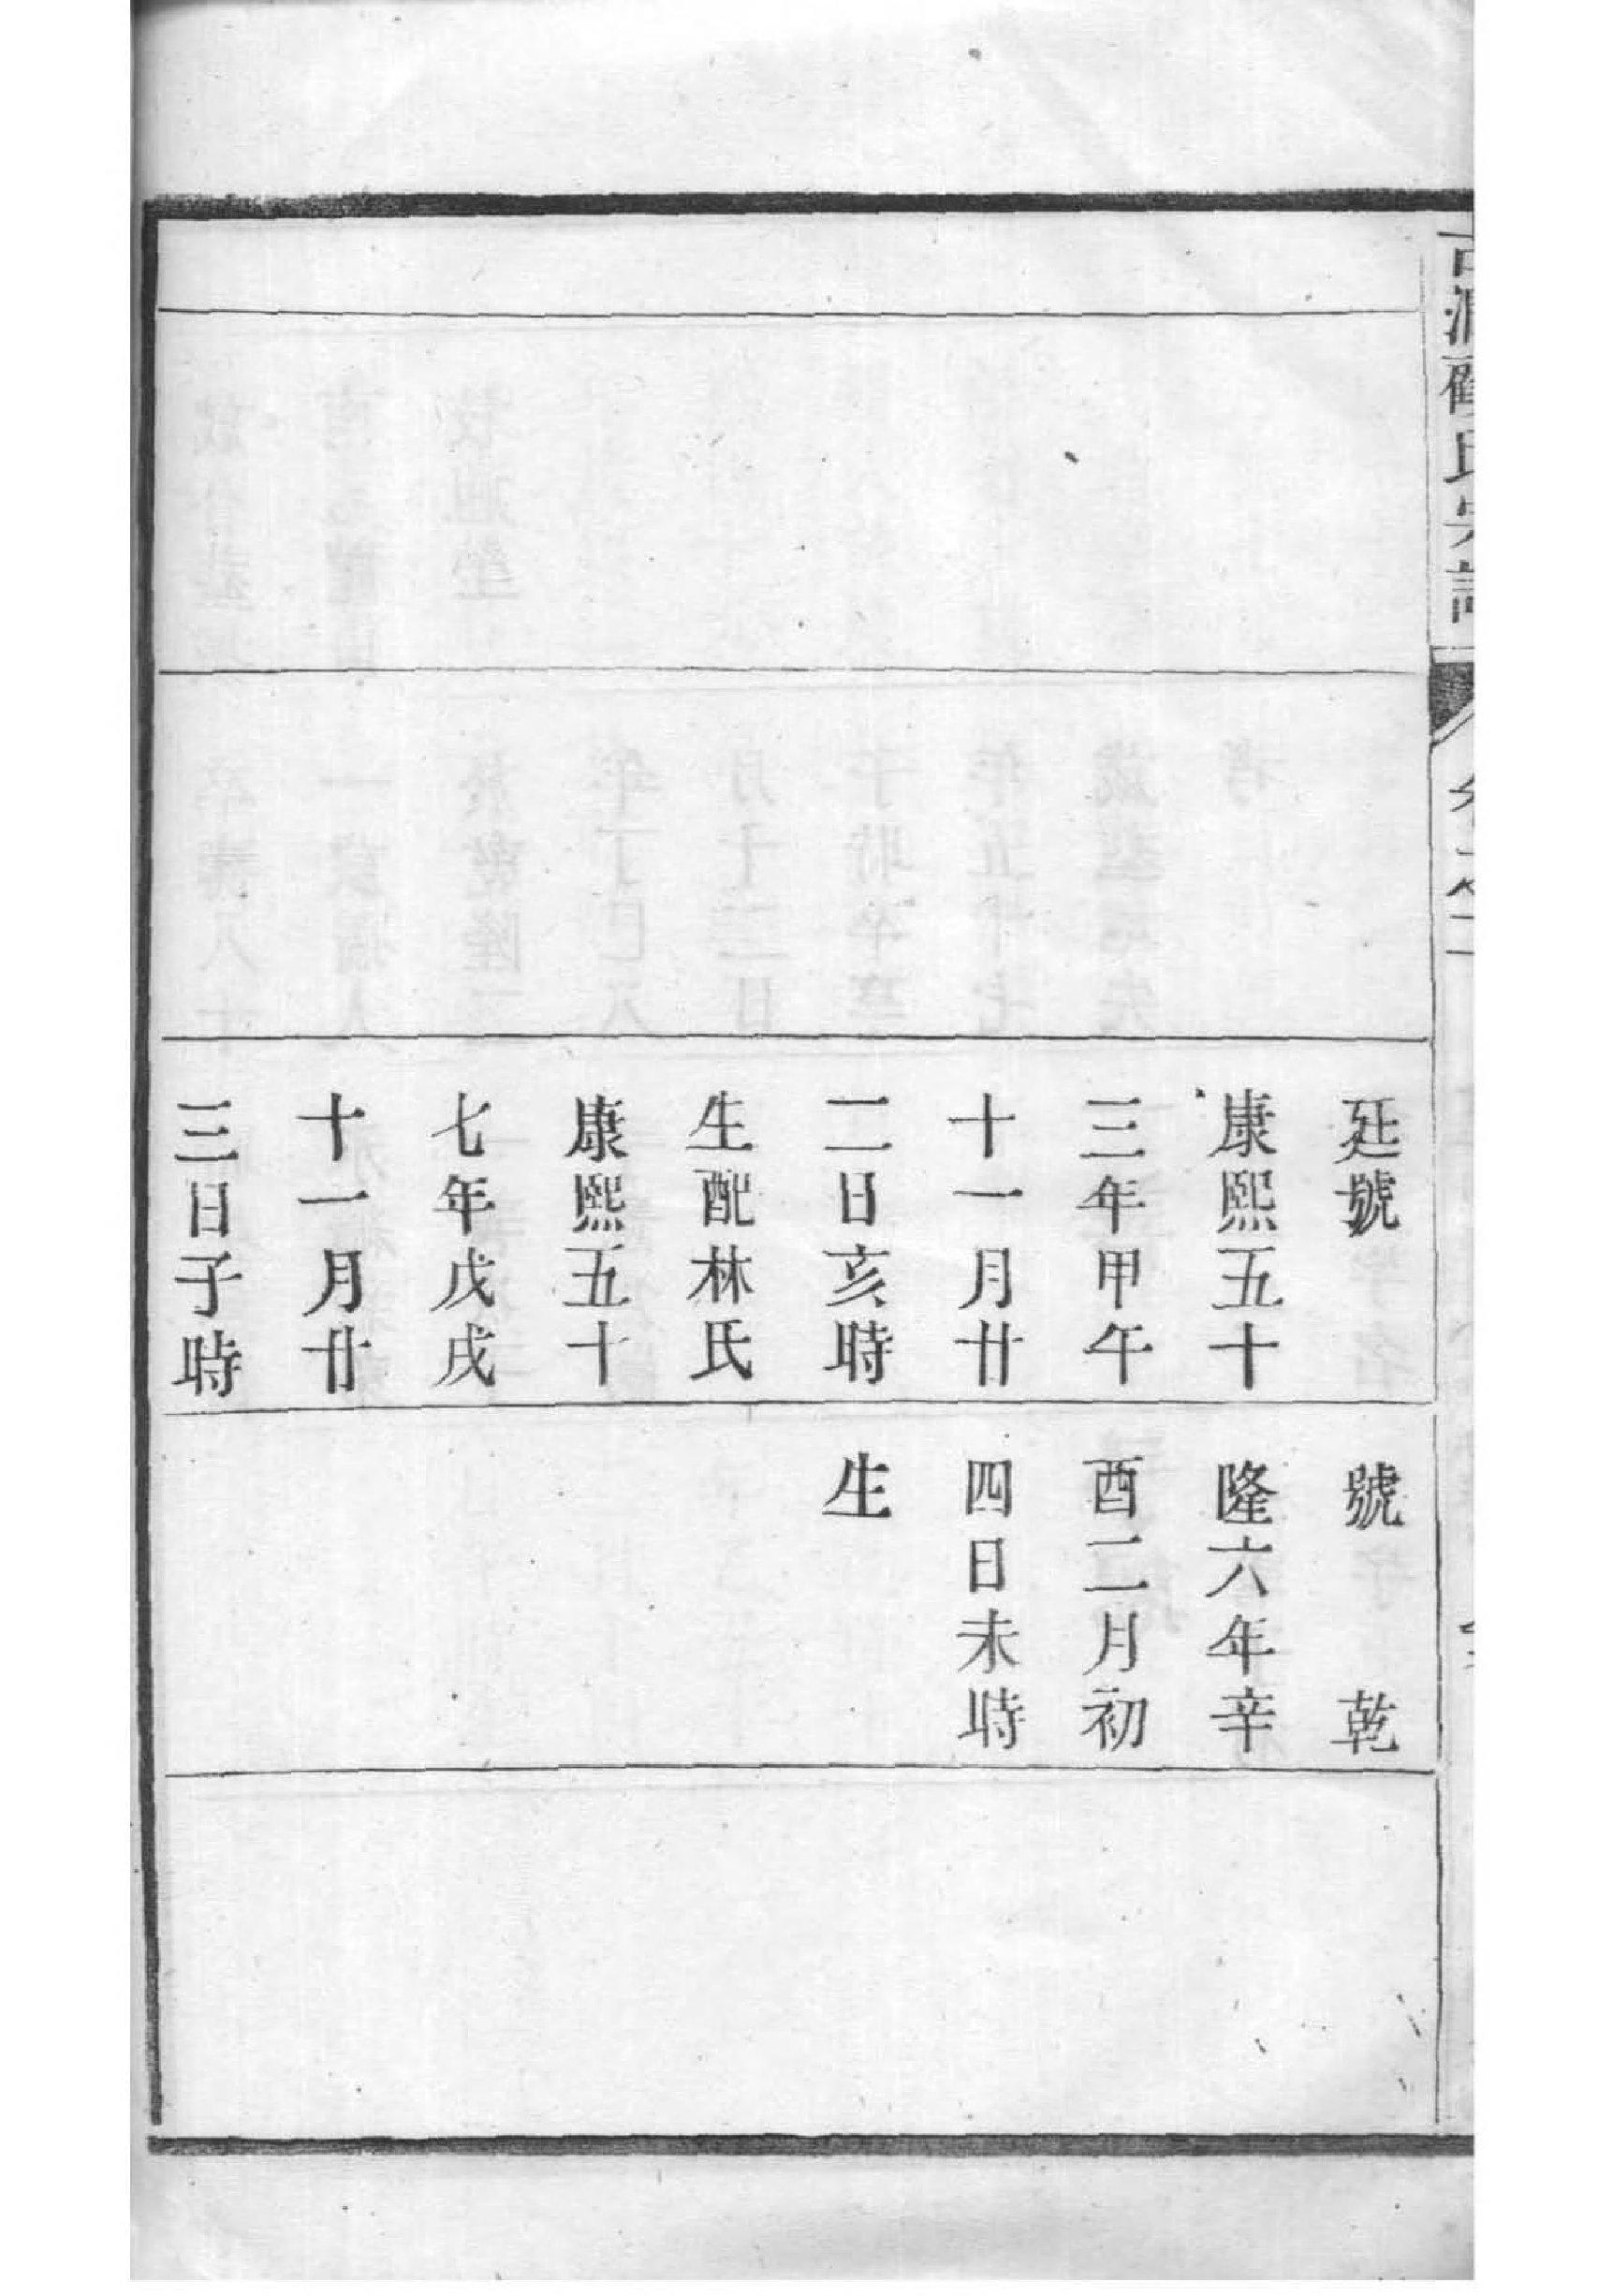 延號
康熙五十
三年甲午
十一月廿
二日亥時
生配林氏
康熙五十
七年戊戌
十一月廿
三日子時
號　乾
隆六年辛
酉二月初
四日未時
生